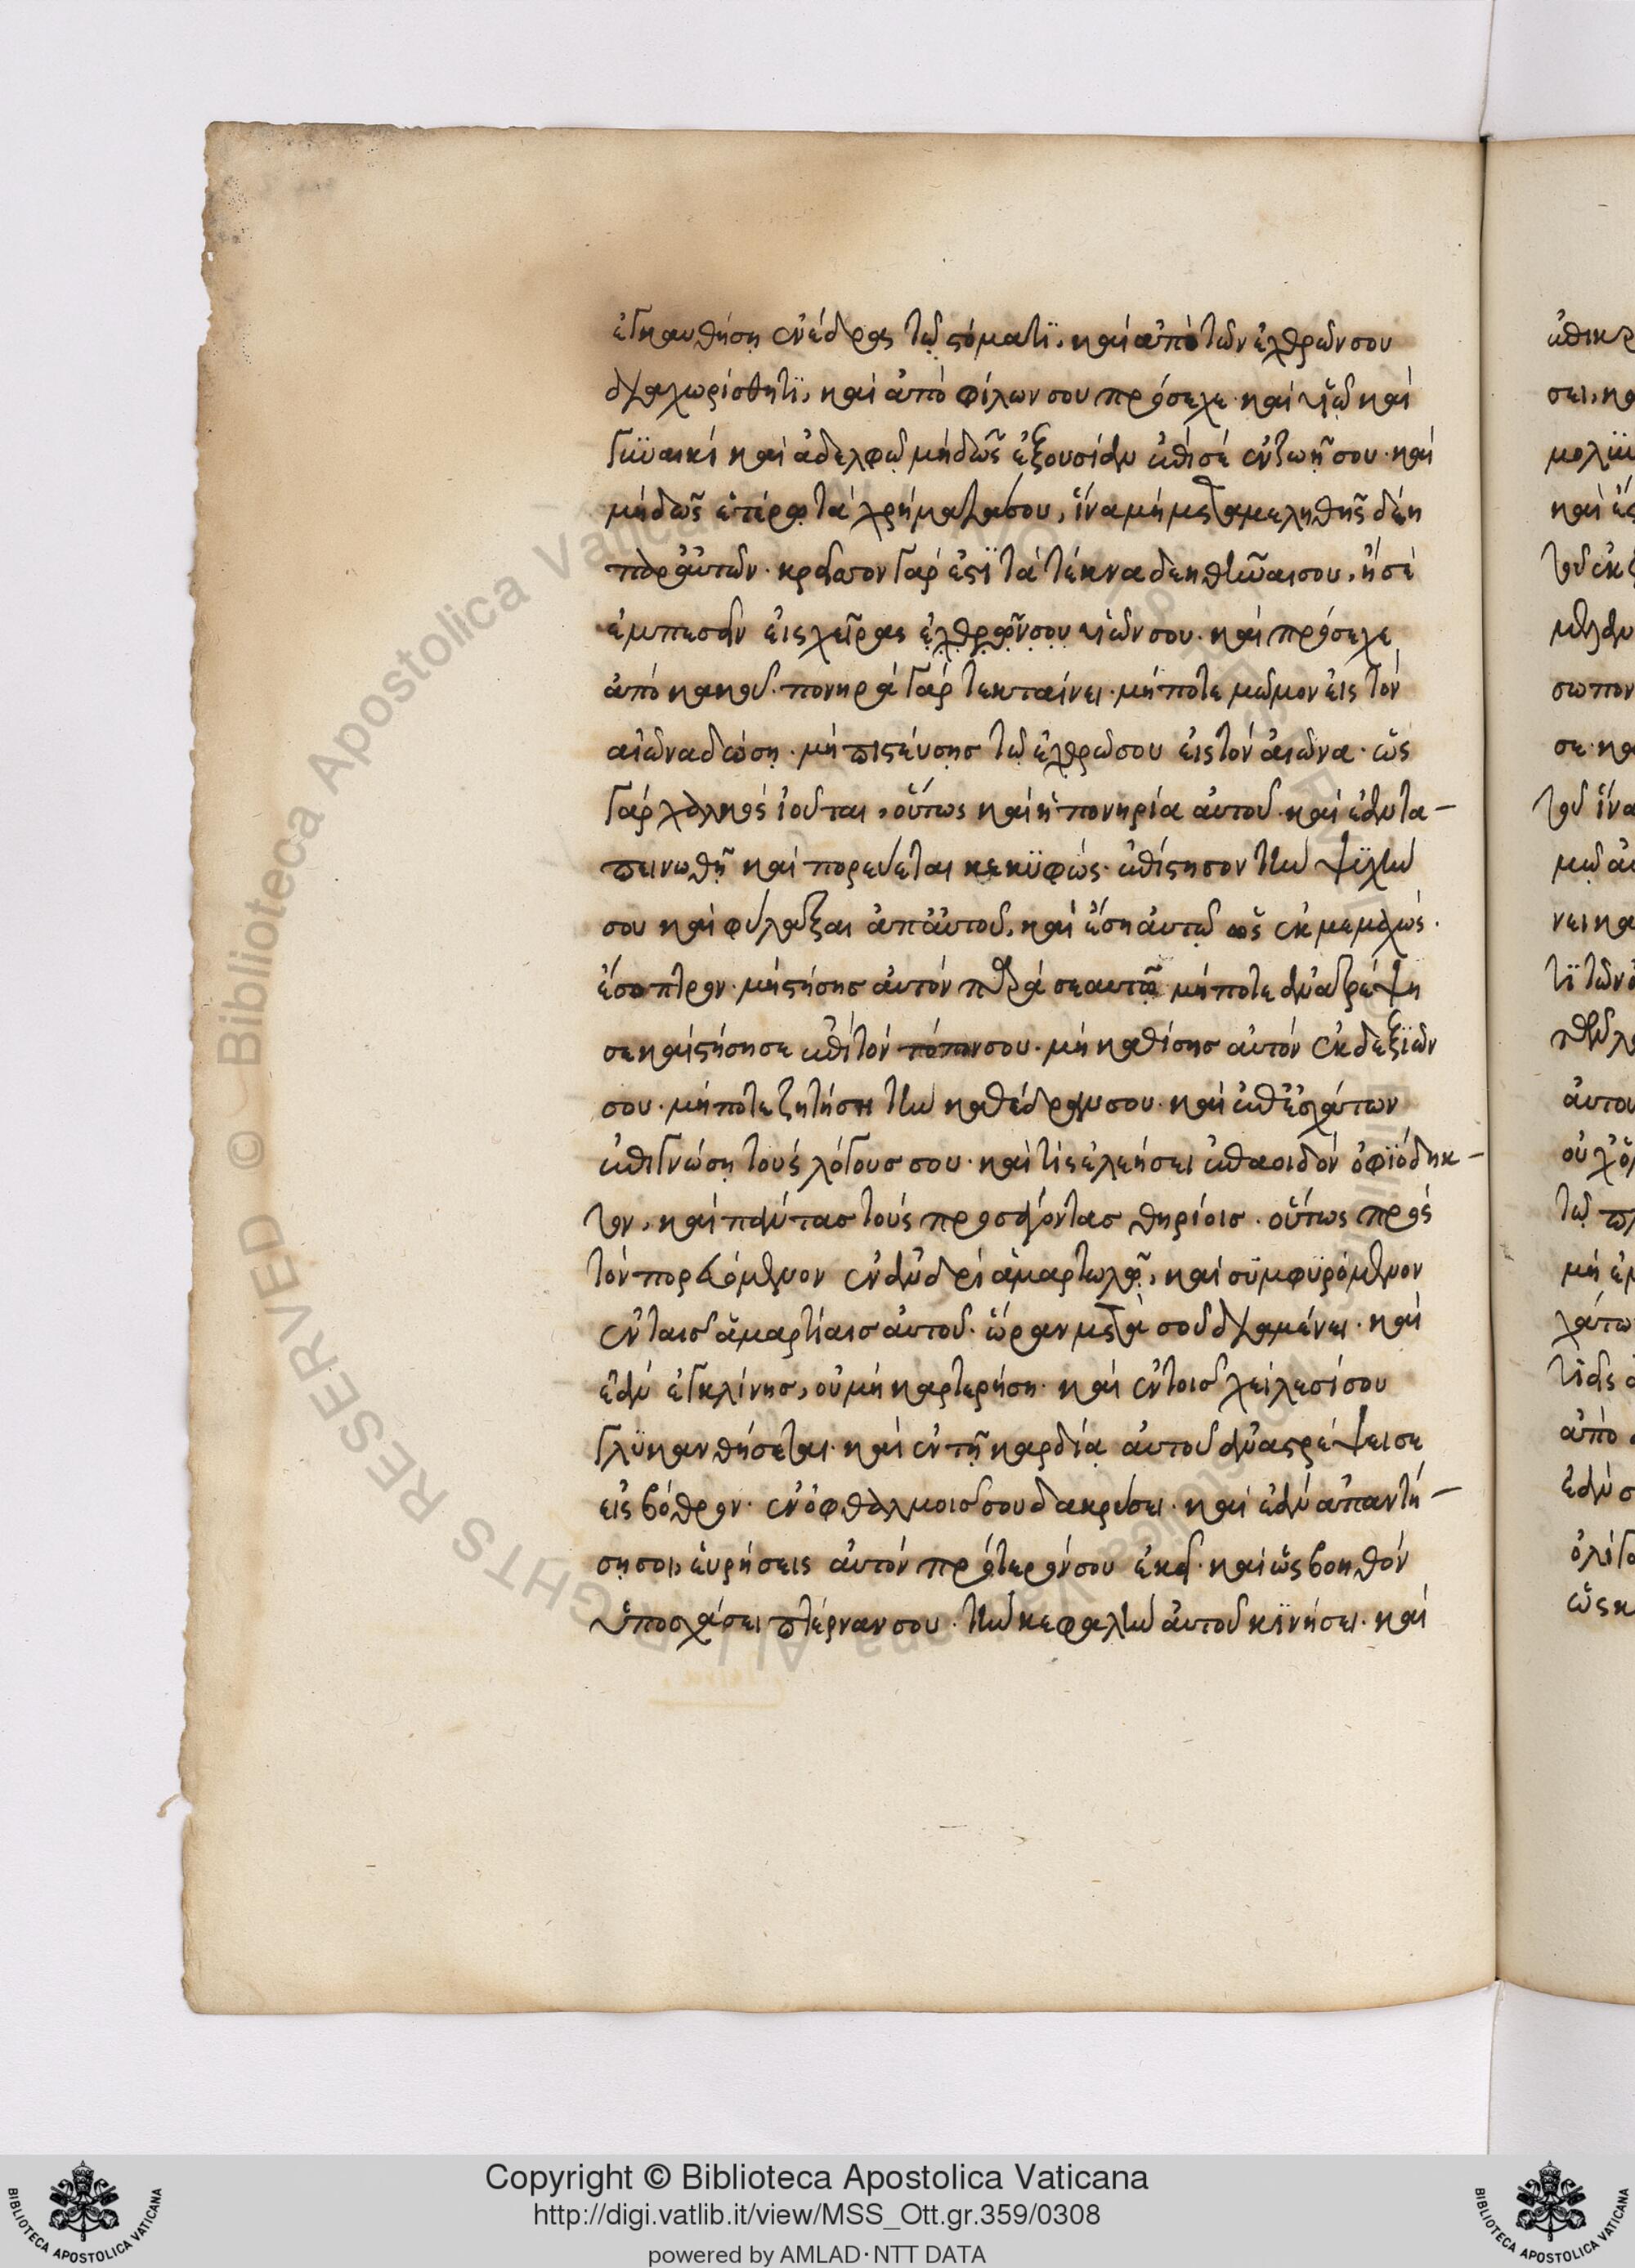 ἐγκαυθήση ἐνέδρας τῷ στόματϊ, καὶ ἀπὸ τῶν ἐχθρῶν σου
διαχωρίσθητϊ, καὶ ἀπὸ φίλων σου πρόσεχε· καὶ υἱῷ καὶ
γϋναικὶ καὶ ἀδελφῷ μὴ δῶς ἐξουσίαν ἐπὶ σὲ ἐν ζωῇ σου· καὶ
μὴ δῶς ἑτέρῳ τὰ χρήματα σου, ἵνα μὴ μεταμεληθῇς δέη
περ αὐτῶν· κρεῖσσον γάρ ἐστϊ τὰ τέκνα δεηθῆναι σου, ἤ σὲ
ἐμπεσεῖν εἰς χεῖρας ἐχθρῶν σου υἱῶν σου· καὶ πρόσεχε
ἀπὸ κακοῦ· πονηρὰ γὰρ τεκταίνει· μήποτε μῶμον εἰς τὸν
αἰῶνα δώση· μὴ πιστεύσης τῷ ἐχθρῷ σου εἰς τὸν αἰῶνα· ὡς
γὰρ χαλκὸς ἰοῦται, οὕτως καὶ ἡ πονηρία αὐτοῦ· καὶ ἐὰν τα-
πεινωθῇ καὶ πορεύεται κεκϋφώς· ἐπίστησον τὴν ψϋχήν
σου καὶ φύλαξαι ἀπ αὐτοῦ, καὶ ἔση αὐτῷ ὡς ἐκμεμαχώς·
ἔσοπτρον· μὴ στήσης αὐτὸν παρὰ σεαυτῷ μήποτε ἀναστρέψη
σε καὶ στήση σε ἐπὶ τὸν τόπον σου· μὴ καθίσης αὐτὸν ἐκ δεξϊῶν
σου· μήποτε ζητήση τὴν καθέδραν σου· καὶ ἐπ ἐσχάτων
ἐπιγνώση τοὺς λόγους σου· καὶ τίς ἐλεήσει ἐπαοιδὸν ὀφϊόδηκ-
τον, καὶ πάντας τοὺς προσάγοντας θηρίοις· οὕτως πρὸς
τὸν πορευόμενον ἐν ἀνδρὶ ἁμαρτωλῷ, καὶ σϋμφϋρόμενον
ἐν ταῖς ἁμαρτίαις αὐτοῦ· ὥραν μετὰ σοῦ διαμένει· καὶ
ἐὰν ἐγκλίνης, οὐ μὴ καρτερήση· καὶ ἐν τοῖς χείλεσί σου
γλϋκανθήσεται· καὶ ἐν τῇ καρδίᾳ αὐτοῦ ἀναστρέψει σε
εἰς βόθρον· ἐν ὀφθαλμοῖς σου δακρύσει· καὶ ἐὰν ἀπαντή-
ση σοι, εὑρήσεις αὐτὸν πρότερόν σου ἐκεῖ· καὶ ὡς βοηθόν
ὑποσχάσει πτέρναν σου· τὴν κεφαλὴν αὐτοῦ κϊνήσει· καὶ
Copyright © Biblioteca Apostolica Vaticana
http://digi.vatlib.it/view/MSS_Ott.gr.359/0308
powered by AMLAD·NTT DATA